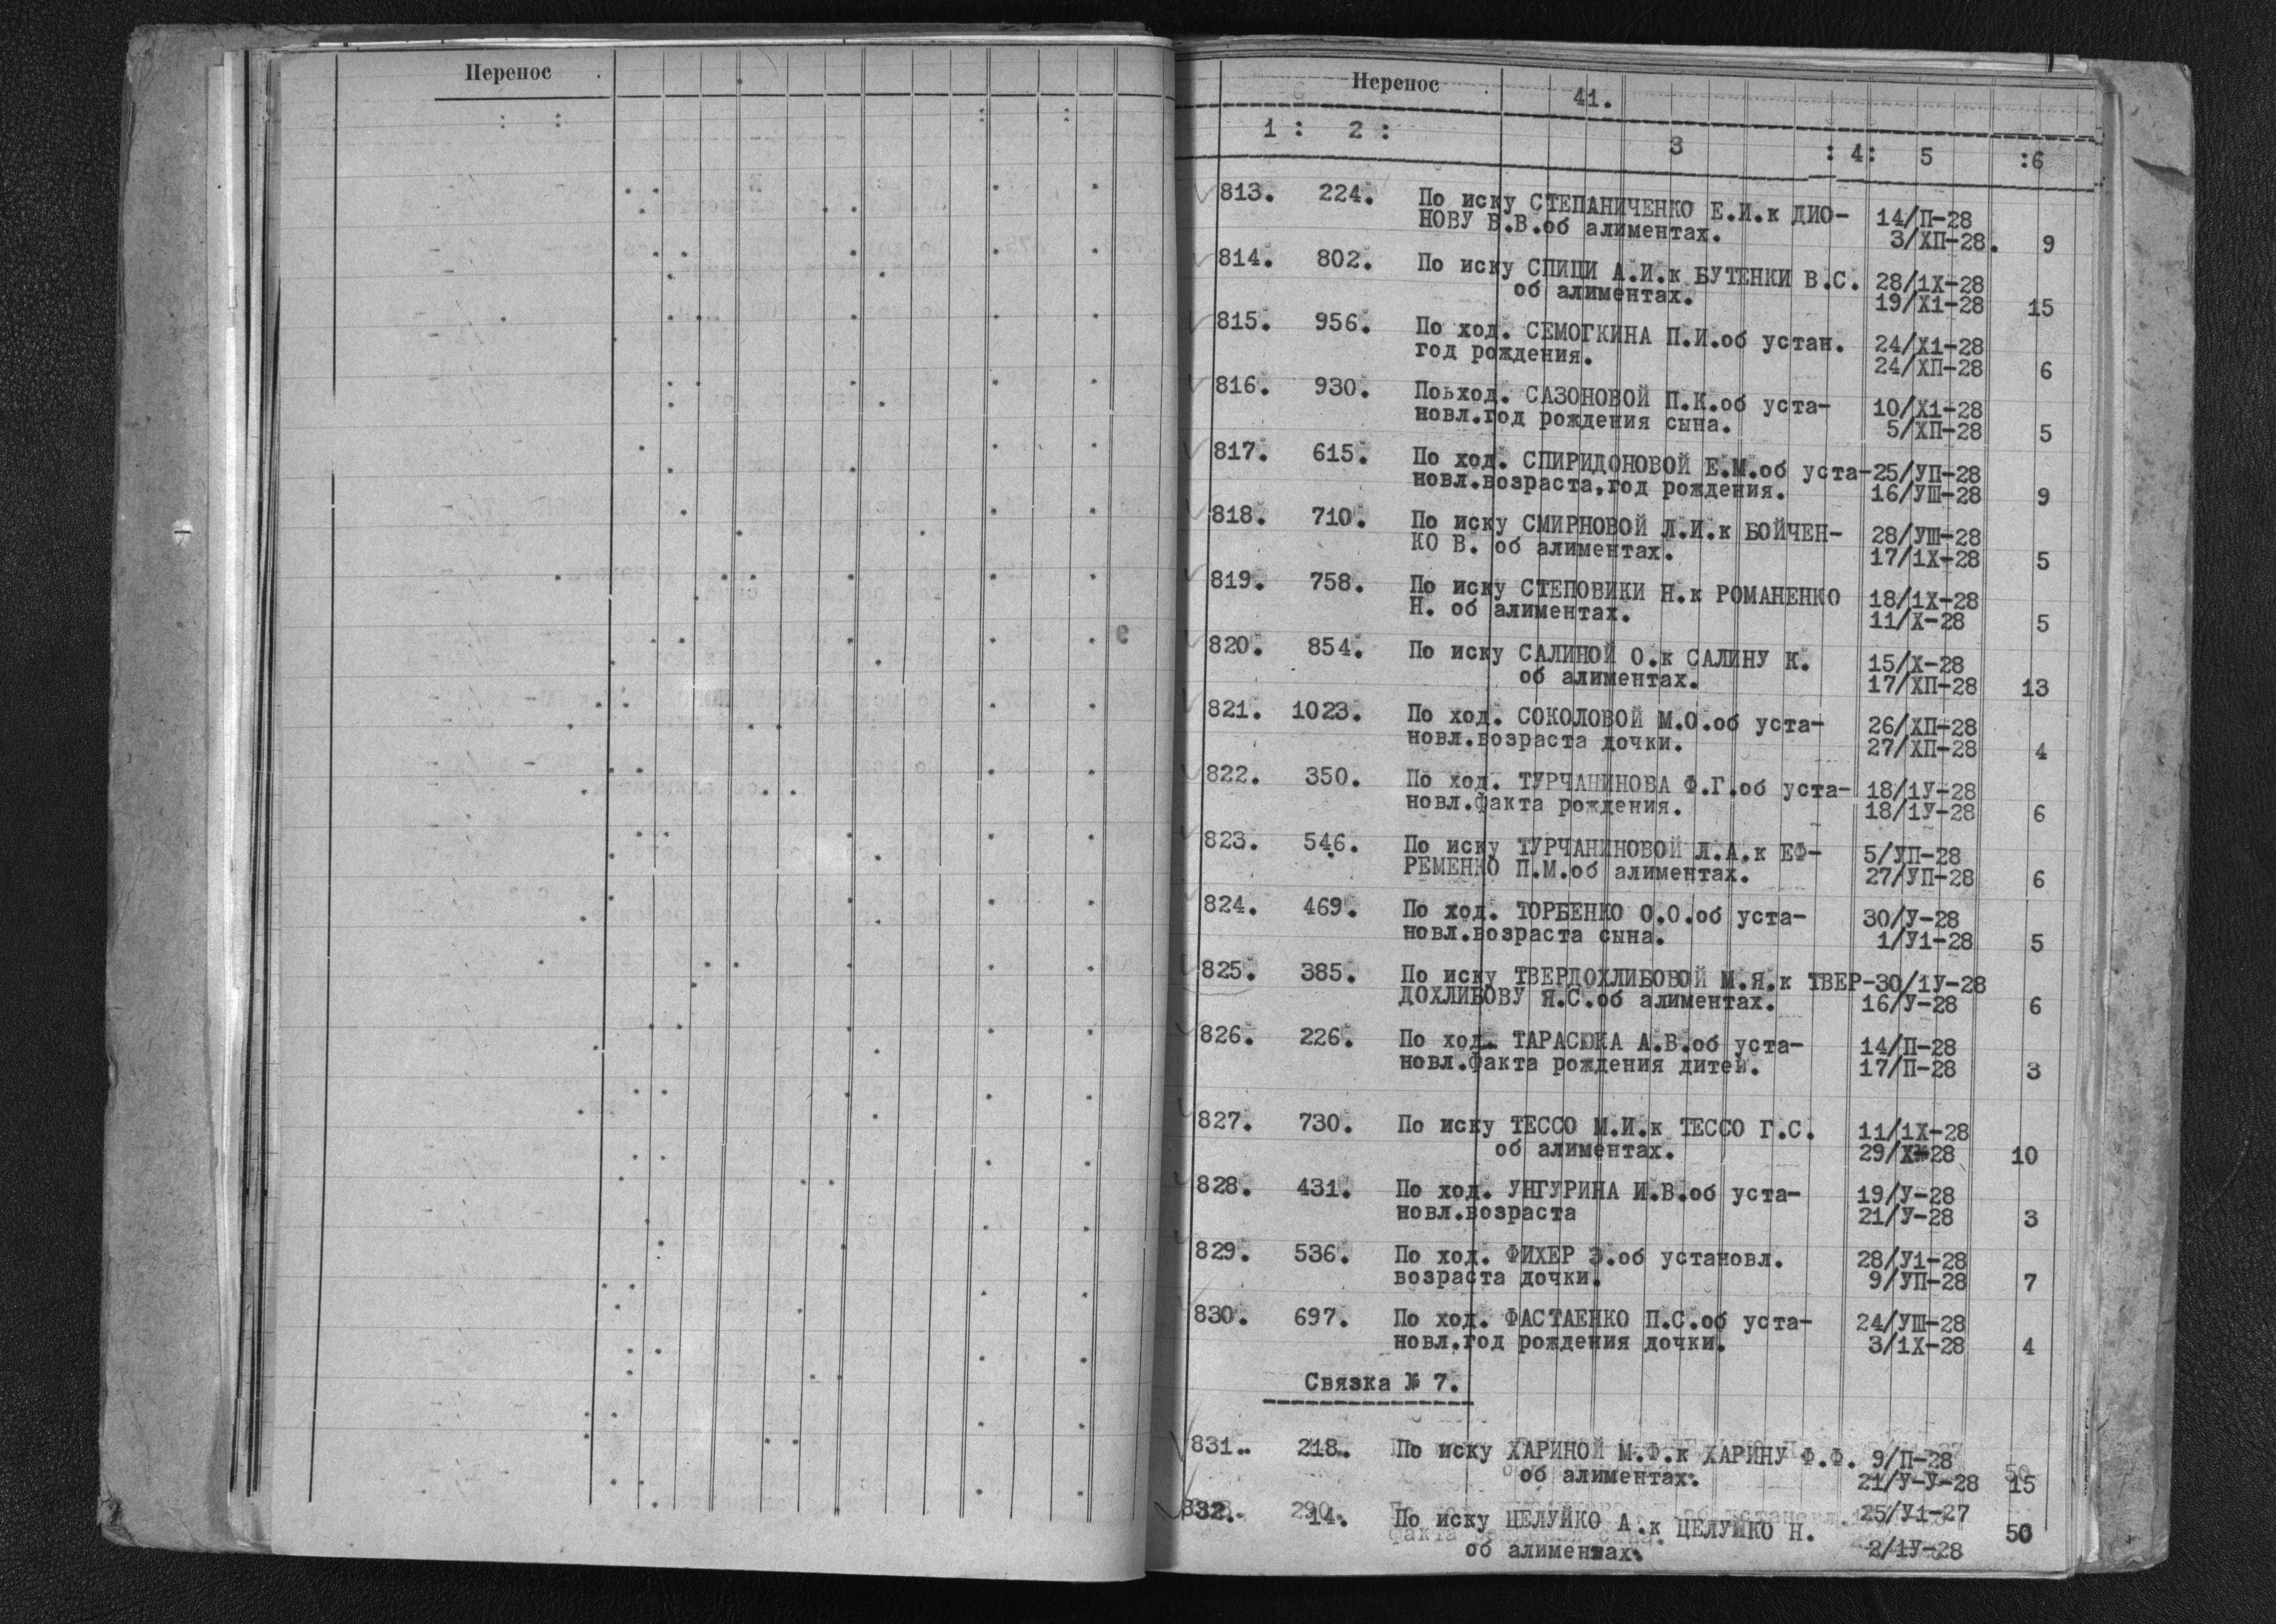 Перенос
Перенос
41.
1 : 2 : 3 : 4: 5 :6
813. 224. По иску СТЕПАНИЧЕНКО Е.И.к ДИО- 14/П-28
НОВУ В.В.об алиментах. 3/ХП-28. 9
814. 802. По иску СПИЦИ А.И.к БУТЕНКИ В.С. 28/1Х-28
об алиментах. 19/Х1-28 15
815. 956. По ход. СЕМОГКИНА П.И.об устан. 24/Х1-28
год рождения. 24/ХП-28 6
816. 930. Поьход. САЗОНОВОЙ П.К.об уста- 10/Х1-28
новл.год рождения сына. 5/ХП-28 5
817. 615. По ход. СПИРИДОНОВОЙ Е.М.об уста-25/УП-28
новл.возраста,год рождения. 16/УШ-28 9
818. 710. По иску СМИРНОВОЙ Л.И.к БОЙЧЕН- 28/УШ-28
КО В. об алиментах. 17/1Х-28 5
819. 758. По иску СТЕПОВИКИ Н.к РОМАНЕНКО 18/1Х-28
Н. об алиментах. 11/Х-28 5
820. 854. По иску САЛИНОЙ О.к САЛИНУ К. 15/Х-28
об алиментах. 17/ХП-28 13
821. 1023. По ход. СОКОЛОВОЙ М.О.об уста- 26/ХП-28
новл.возраста дочки. 27/ХП-28 4
822. 350. По ход. ТУРЧАНИНОВА Ф.Г.об уста- 18/1У-28
новл.факта рождения. 18/1У-28 6
823. 546. По иску ТУРЧАНИНОВОЙ Л.А.к ЕФ- 5/УП-28
РЕМЕНКО П.М.об алиментах. 27/УП-28 6
824. 469. По ход. ТОРБЕНКО О.О.об уста- 30/У-28
новл.возраста сына. 1/У1-28 5
825. 385. По иску ТВЕРДОХЛИБОВОЙ М.Я.к ТВЕР-30/1У-28
ДОХЛИБОВУ Я.С.об алиментах. 16/У-28 6
826. 226. По ход. ТАРАСЮКА А.В.об уста- 14/П-28
новл.факта рождения дитей. 17/П-28 3
827. 730. По иску ТЕССО М.И.к ТЕССО Г.С. 11/1Х-28
об алиментах. 29/Х-28 10
828. 431. По ход. УНГУРИНА И.В.об уста- 19/У-28
новл.возраста 21/У-28 3
829. 536. По ход. ФИХЕР Э.об установл. 28/У1-28
возраста дочки. 9/УП-28 7
830. 697. По ход. ФАСТАЕНКО П.С.об уста- 24/УШ-28
новл.год рождения дочки. 3/1Х-28 4
Связка № 7.
831.. 218. По иску ХАРИНОЙ М.Ф.к ХАРИНУ Ф.Ф. 9/П-28
об алиментах. 21/У-У-28 15
832. 14. По иску ЦЕЛУЙКО А.к ЦЕЛУЙКО Н. 25/У1-27
об алиментах. 2/1У-28 50